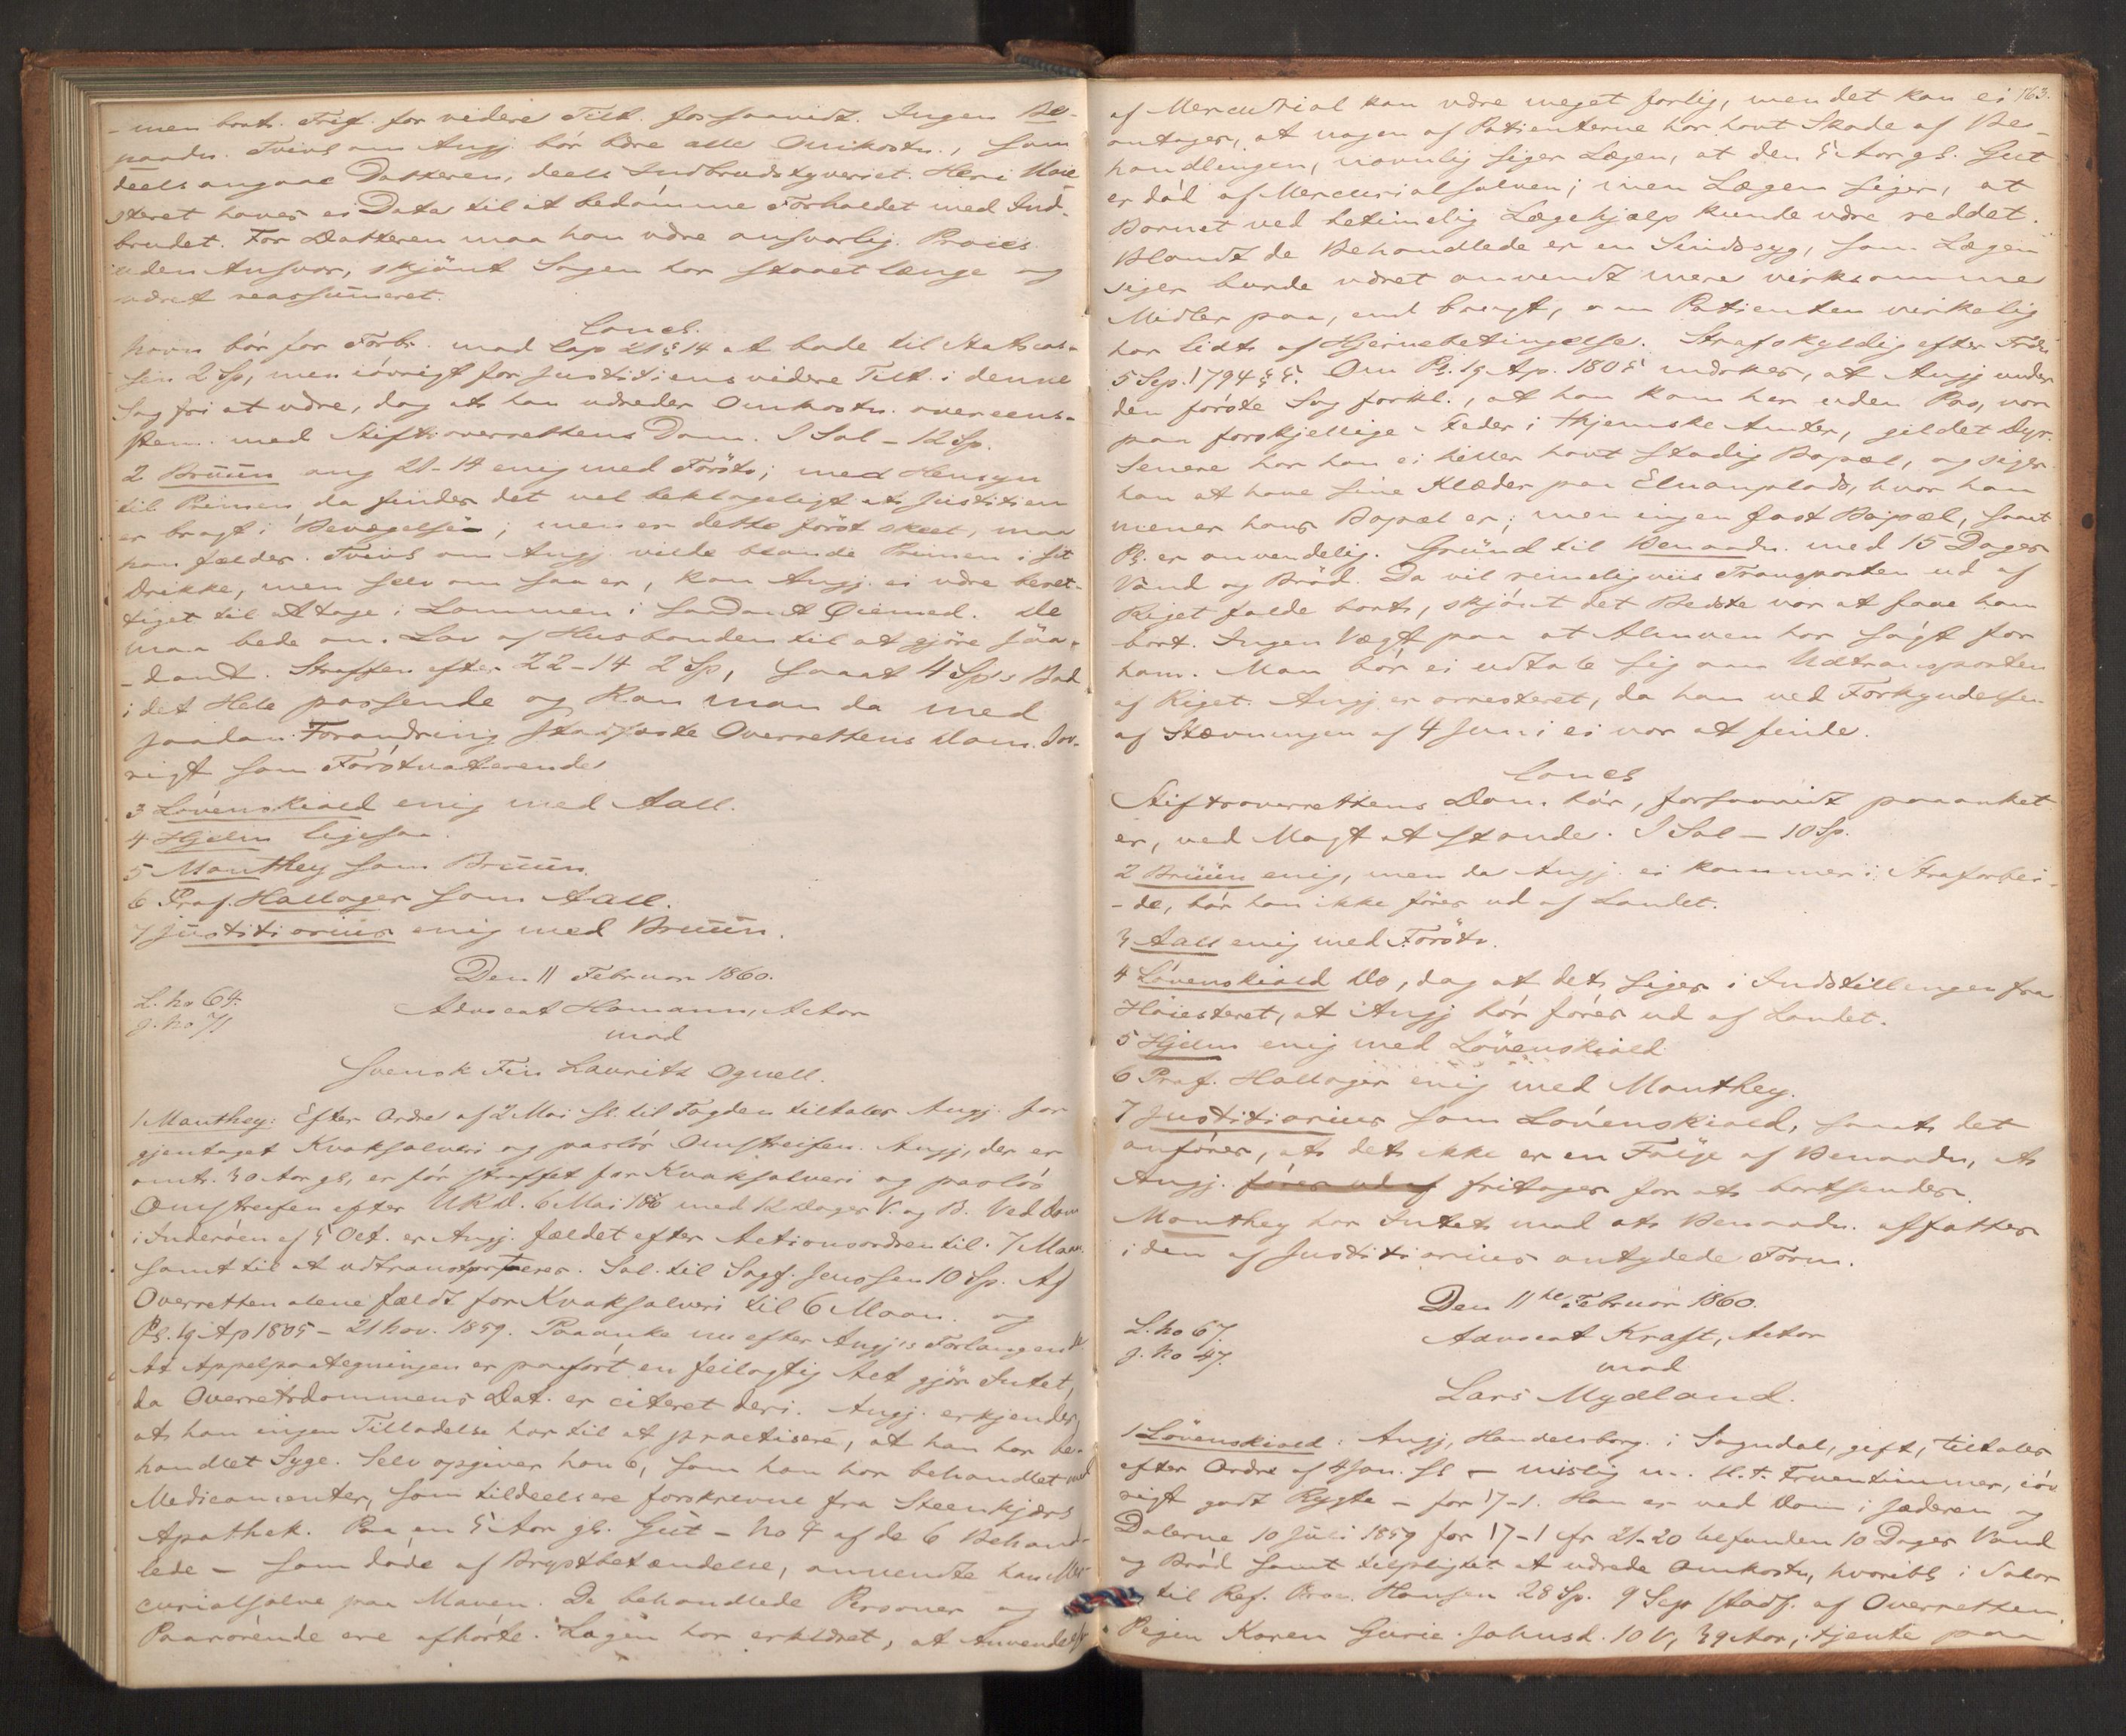 - men bort. Trif. for videre Tilt. forsaavidt. Ingen Be-
naadn. Tvivl om Angj. bör bære alle Omkostn., som
deels angaae Datteren, deels Indbrudstyveriet. Her i Höie-
steret haves ei Data til at bedömme Forholdet med Ind-
brudet. For Datteren maa han være ansvarlig. Proces
uden Ansvar, skjönt Sagen har staaet længe og
været reassumeret.
Concl.
bör for Forbr. mod Cap 21 § 14 at bøde til Statscas-
sen 2 Sp, men iövrigt for Justitiens videre Tilt. i denne
Sag fri at være, dog at han udreder Omkostn. overeens-
stem. med Stiftsoverrettens Dom. I Sal - 12 Sp.
2 Brüün ang 21-14 enig med Förstv; med Hensyn
til Primen, da finder det vel beklageligt at Justitien
er bragt i Bevægelse; men er dette först skeet, maa
han fældes. Tvivl om Angj. vilde blande Primen i sit
Drikke, men selv om saa er, kan Angj. ei være beret-
tiget til at tage i Lommen i saadant Öiemed. De
maa bede om Lov af Husbonden til at gjöre saa-
- dant. Straffen efter 22-14 2 Sp, saaat 4 Sp's Bod
i det Hele passende og kan man da med
saadan Forandring stadfæste Overrettens Dom. Iöv-
rigt som Förstvoterende
3 Lövenskiold enig med Aall.
4 Hjelm ligesaa.
5 Manthey som Brüün.
6 Prof. Hallager som Aall.
7 Justitiarius enig med Brüün.
Den 11 Februar 1860.
L. No 64.
J. No 71
Advocat Homann, Actor
mod
Svensk Fin Lauritz Ognell.
1 Manthey: Efter Ordre af 2 Mai sl. til Fogden tiltales Angj. for
gjentaget Kvaksalveri og paslös Omstreifen. Angj, der er
omtr. 30 Aar gl, er för straffet for Kvaksalveri og paslös
Omstreifen efter URD. 6 Mai med 12 Dages V. og B. Ved Dom
i Inderöen af 5 Oct. er Angj. fældet efter Actionsordren til 7 Maan.
samt til at udtransporteres. Sal. til Sagf. Jenssen 10 Sp. Af
Overretten alene fældt for Kvaksalveri til 6 Maan. og
Pl. 19 Ap 1805 - 21 Nov. 1859. Paaanke nu efter Angj's Forlangende
At Appelpaategningen er paafört en feilagtig Act gjör Intet,
da Overretsdommens Dat. er citeret deri. Angj. erkjender,
at han ingen Tilladelse har til at practisere, at han har be-
handlet Syge. Selv opgiver han 6, som han har behandlet med
Medicamenter, som tildeels ere forskrevne fra Steenkjærs
Apothek. Paa en 5 Aar gl. Gut - No 4 af de 6 Behand-
lede - som döde af Brystbetændelse, anvendte han Mer-
curialsalve paa Maven. De behandlede Personer og
Paarörende ere afhörte. Lægen har erklæret, at Anvendelse
163.
af Mercurial kan være meget farlig, men det kan ei
antages, at nogen af Patienterne har havt Skade af Be-
handlingen, navnlig siger Lægen, at den 5 Aar gl. Gut
er död af Mercurialsalven; men Lægen siger, at
Barnet ved betimelig Lægehjælp kunde være reddet.
Blandt de Behandlede er en Sindssyg, som Lægen
siger burde været anvendt mere virksomme
Midler paa, end bragt, om Patienten virkelig
har lidt af Hjernebetingelse. Strafskyldig efter Frdn
5 Sep. 1794 § 5. Om Pl. 19 Ap. 1805 mærkes, at Angj under
den förste Sag forkl., at han kom her uden Pas, var
paa forskjellige Steder i Hjemske Amter, gildet Dyr.
Senere har han ei heller havt stadig Bopæl, og siger
han at have sine Klæder paa Elvanplads, hvor han
mener hans Bopæl er; men ingen fast Bopæl, saaat
Pl. er anvendelig. Grund til Benaadn. med 15 Dages
Vand og Bröd. Da vil rimeligviis Transporten ud af
Riget falde bort, skjönt det Bedste var at faae ham
bort. Ingen Vægt paa at Almuen har sögt for
ham. Man bör ei udtale sig om Udtransporten
af Riget. Angj er arresteret, da han ved Forkyndelsen
af Stævningen af 4 Juni ei var at finde.
Concl
Stiftsoverrettens Dom bör, forsaavidt paaanket
er, ved Magt at stande. I Sal - 10 Sp.
2 Brüün enig, men da Angj. ei kommer i Strafarbei-
- de, bör han ikke föres ud af Landet.
3 Aall enig med Förstv.
4 Lövenskiold Do, dog at det siges i Indstillingen fra
Höiesteret, at Angj bör föres ud af Landet.
5 Hjelm enig med Lövenskiold
6 Prof. Hallager enig med Manthey.
7 Justitiarius som Lövenskiold, saaat det
anföres, at det ikke er en Fölge af Benaadn, at
Angj. föres ud af fritages for at bortsendes.
Manthey har Intet mod at Benaadn. affattes
i den af Justitiarius antydede Form.
Den 11te Februar 1860.
L. No 67.
J. No 47.
Advocat Kraft, Actor
mod
Lars Mydland.
1 Lövenskiold: Angj, Handelsborg. i Sogndal, gift, tiltales
efter Ordre af 4 Jan. sl - mislig m. H. t. Fruentimmer, iöv
rigt godt Rygte - for 17-1. Han er ved Dom i Jæderen og
Dalerne 10 Juli 1859 for 17-1 cfr 21-20 befunden 10 Dages Vand
og Bröd samt tilpligtet at udrede Omkostn, hvoribl i Salar
til Ref. Proc. Hansen 28 Sp. 9 Sep stadf. af Overretten.
Pigen Karen Gurie Johnsd. 10 V, 39 Aar, tjente paa